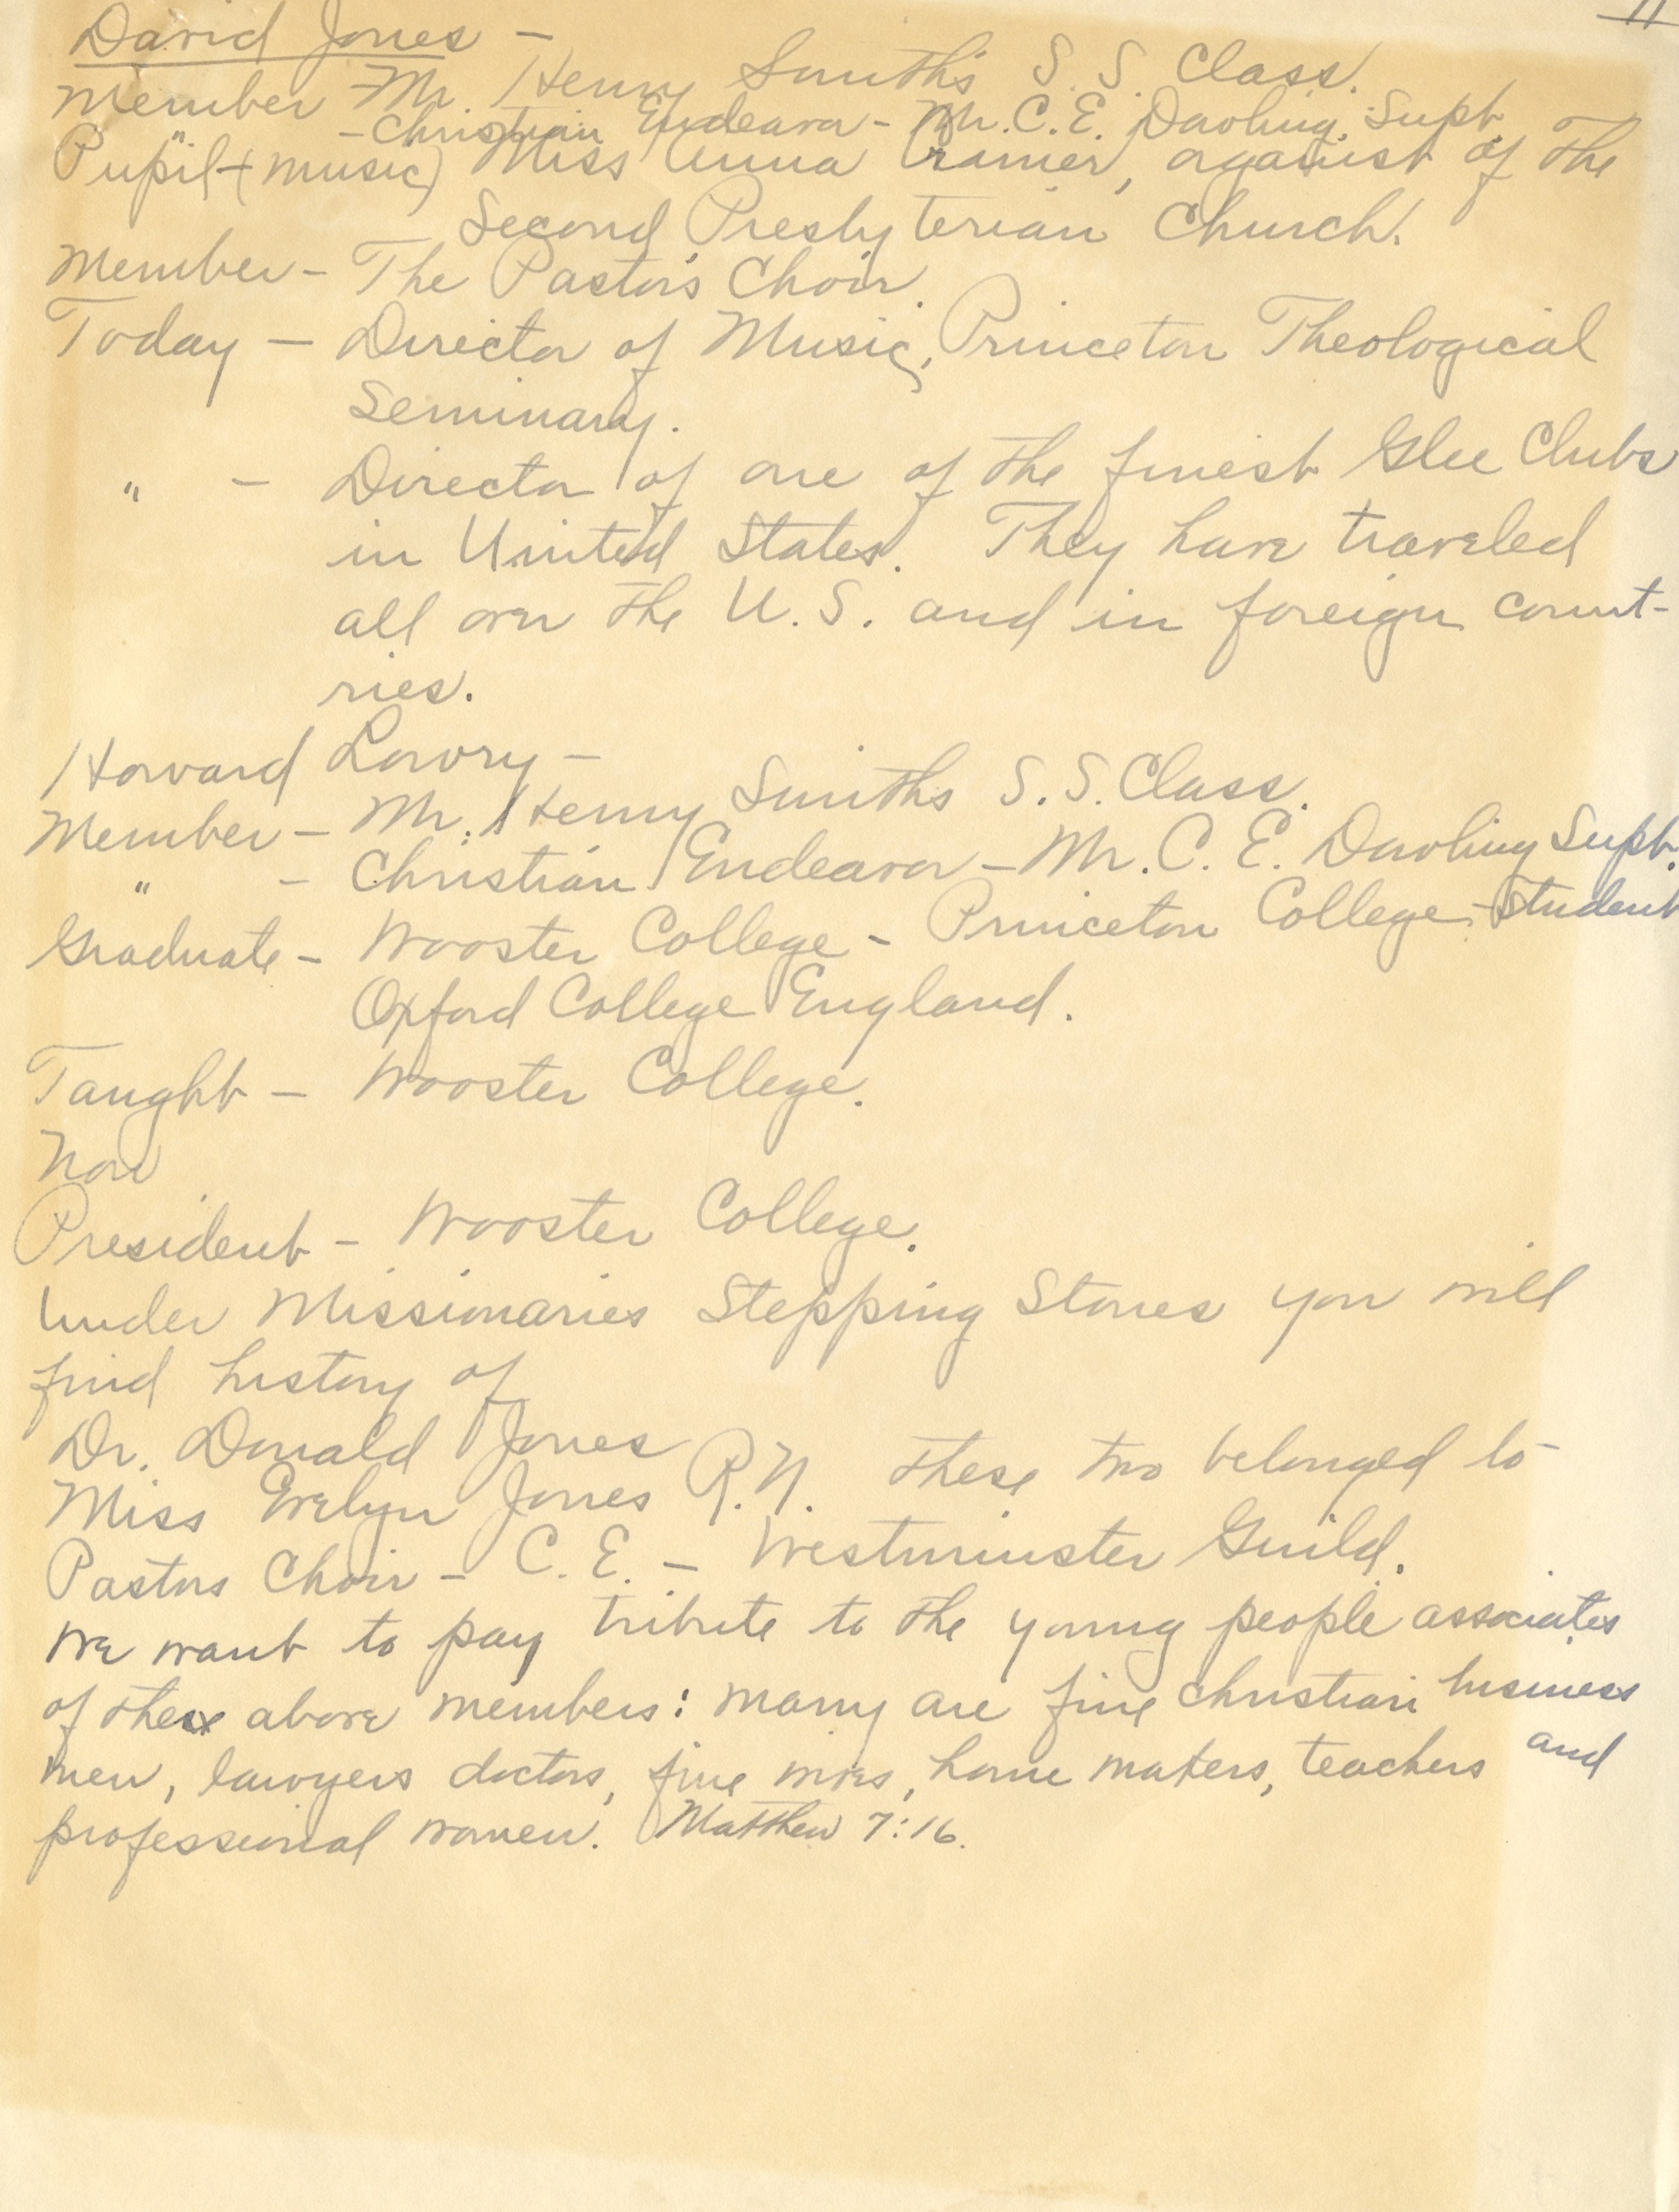 11
David Jones -
Member - Mr. Henry Smith's S. S. Class.
" - Christian Endeavor - Mr. C. E. Dowling. Supt.
Pupil - (music) Miss Anna Cramer, organist of the
Second Presbyterian Church.
Member - The Pastor's Choir.
Today - Director of Music, Princeton Theological
Seminary.
" - Director of one of the finest Glee Clubs
in United States. They have traveled
all over the U. S. and in foreign count-
ries.
Howard Lowry -
Member - Mr. Henry Smiths S. S. Class.
" - Christian Endeavor - Mr. C. E. Dowling Supt.
Graduate - Wooster College - Princeton College - Student
Oxford College England.
Taught - Wooster College.
Now
President - Wooster College.
Under Missionaries Stepping Stones you will
find history of
Dr. Donald Jones
Miss Evelyn Jones R. N. these two belonged to
Pastors Choir - C. E. - Westminster Guild.
We want to pay tribute to the young people associates
of these above members: many are fine christian business
men, lawyers doctors, fine wives, home makers, teachers and
professional women. Matthew 7:16.